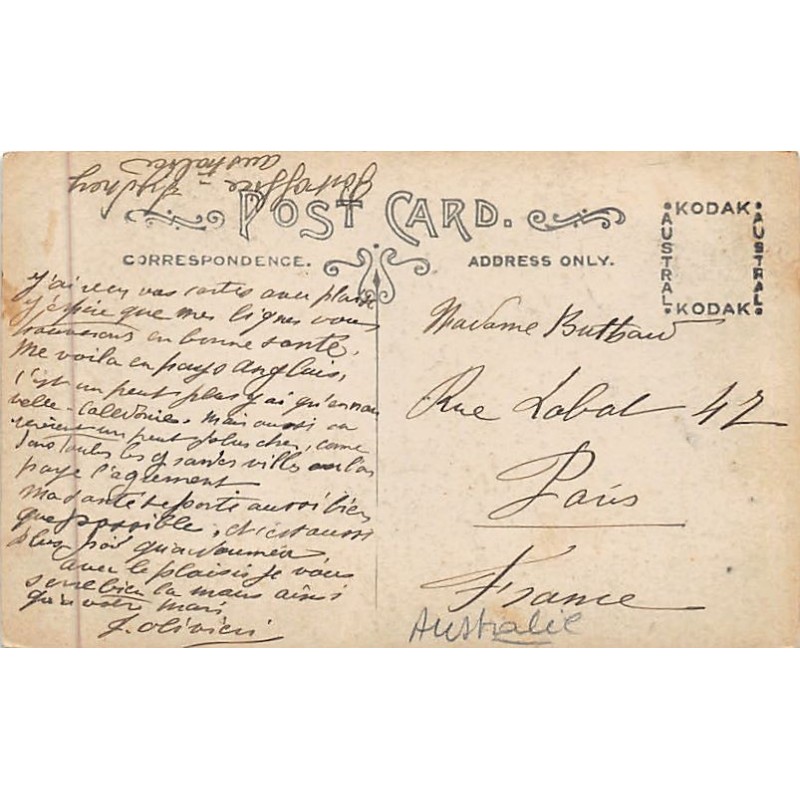 Post office - Sydney
australie
POST CARD.
CORRESPONDENCE.
ADDRESS ONLY.
KODAK
AUSTRAL
AUSTRAL
KODAK
J'ai reçu vos cartes avec plaisir
J'espère que mes lignes vous
trouverons en bonne santé,
me voila en pays Anglais,
c'est un peut plus gai qu'en nou
velle-Caledonie, mais aussi ca
revient un peut plus cher, come
dans toutes les grandes ville on
paye l'agrement
ma santé se porte aussi bien
que possible, et c'est aussi
plus qu'a Noumea
avec le plaisir je vous
serre bien la main ainsi
qu'a votre mari
J. Olivieri
Madame
Rue Labat 42
Paris
France
Australie